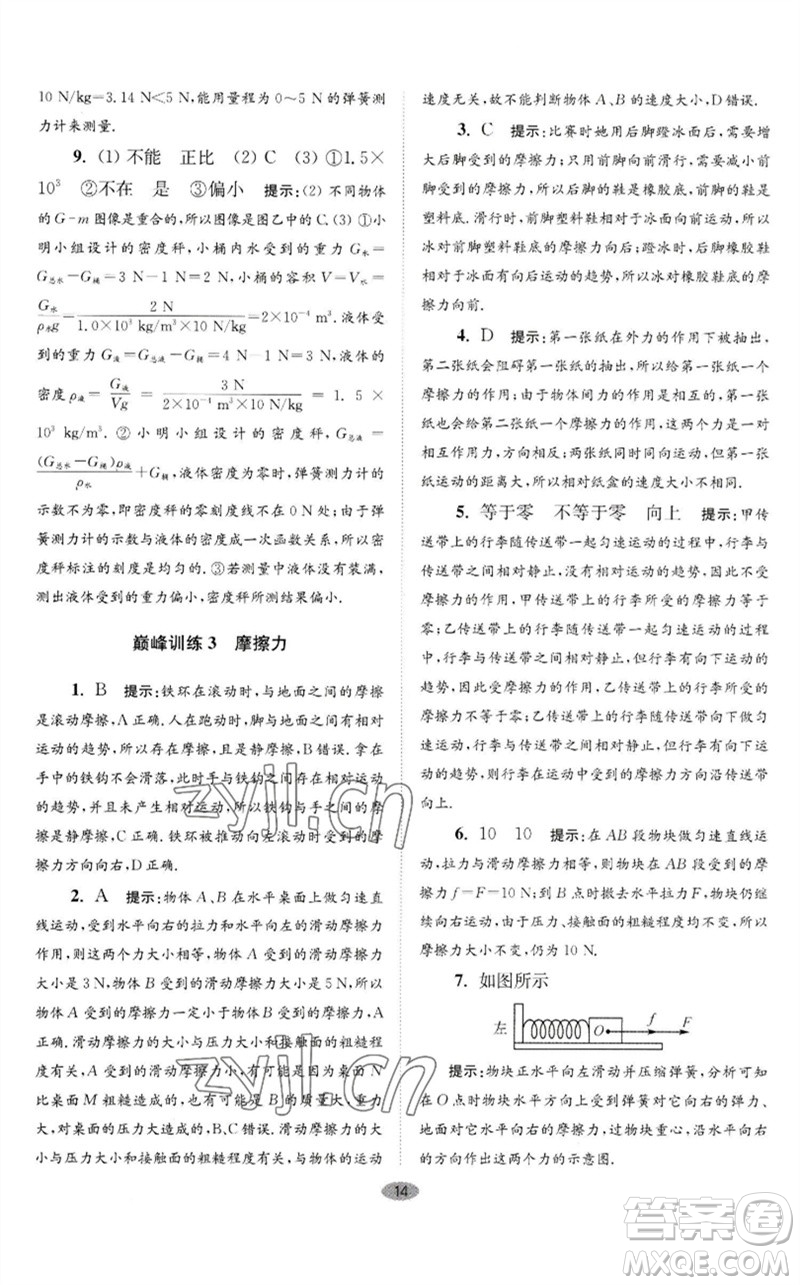 10 N/kg=3.14 N≤5 N,能用量程为 0～5 N 的弹簧测
力计来测量.
9. (1) 不能 正比 (2) C (3) ①1.5×
10³ ②不在 是 ③偏小 提示:(2) 不同物体
的 G-m 图像是重合的,所以图像是图乙中的 C. (3) ①小
明小组设计的密度秤,小桶内水受到的重力 G水=
G总水－G桶=3 N－1 N=2 N,小桶的容积 V=V水=
G水/ρ水g=2 N/1.0×10³ kg/m³×10 N/kg=2×10⁻⁴ m³.液体受
到的重力 G液=G总液－G桶=4 N－1 N=3 N,液体的
密度 ρ液=G液/Vg=3 N/2×10⁻⁴ m³×10 N/kg=1.5×
10³ kg/m³. ②小明小组设计的密度秤, G总液=
(G总水－G桶)ρ液/ρ水+G桶,液体密度为零时,弹簧测力计的
示数不为零,即密度秤的零刻度线不在 0 N 处;由于弹
簧测力计的示数与液体的密度成一次函数关系,所以密
度秤标注的刻度是均匀的. ③若测量中液体没有装满,
测出液体受到的重力偏小,密度秤所测的密度偏小.
巅峰训练 3 摩擦力
1. B 提示:铁环在滚动时,与地面之间的摩擦
是滚动摩擦,A 正确.人在跑动时,脚与地面之间有相对
运动的趋势,所以存在摩擦,且是静摩擦,B 错误.拿在
手中的铁钩不会滑落,是因为铁钩与手之间有相对运动
的趋势,并且未产生相对运动,铁钩与手之间的摩擦
是静摩擦,C 正确.铁环在向左滚动时,受到地面的摩擦
力方向向右,D 正确.
2. A 提示:物体 A、B 在水平桌面上做匀速直
线运动,受到水平向右的拉力和水平向左的滑动摩擦力
作用,则这两个力大小相等,物体 A 受到的滑动摩擦力
大小是 3 N,物体 B 受到的滑动摩擦力大小是 5 N,所以
物体 A 受到的摩擦力一定小于物体 B 受到的摩擦力,A
正确.滑动摩擦力的大小与压力大小和接触面的粗糙程
度有关,A 受到的摩擦力小于 B 受到的摩擦力,可能是
物体 A 对桌面 M 的压力小造成的,也可能是桌面 N
比桌面 M 粗糙造成的,也有可能是 B 对桌面的压力比较
大,对桌面的压力大造成的,B、C 错误.滑动摩擦力的大
小与压力大小和接触面的粗糙程度有关,与物体的运动
速度无关,故不能判断物体 A、B 的速度大小,D 错误.
3. C 提示:比赛时她用后脚蹬冰面后,需要增
大后脚受到的摩擦力;只用前脚向前滑行,需要减小前
脚受到的摩擦力,所以后脚的鞋是橡胶底,前脚的鞋是
塑料底.滑行时,前脚塑料鞋相对于冰面向前运动,所以
冰对前脚塑料鞋底的摩擦力向后;蹬冰时,后脚橡胶鞋
相对于冰面有向后运动的趋势,所以冰对橡胶鞋底的摩
擦力向前.
4. D 提示:第一张纸在外力的作用下被抽出,
第二张纸会阻碍第一张纸的抽出,所以给第一张纸一个
摩擦力的作用;由于物体间力的作用是相互的,第一张
纸也会给第二张纸一个摩擦力的作用,这两个力大小相
等,作用点不同,方向相反;两张纸同时同向运动,第一
张纸运动的距离大,所以相对纸盒的速度大小不相同.
5. 等于零 不等于零 向上 提示:甲传
送带上的行李随传送带一起匀速运动的过程中,甲传送
带上的行李与传送带相对静止,但没有相对运动的趋
势,所以没有摩擦力,甲传送带上的行李所受的摩擦力等于
零;乙传送带上的行李随传送带一起匀速运动的过程
中,行李与传送带相对静止,但乙传送带上的行李有向
下运动的趋势,因此受到摩擦力,乙传送带上的行李所受的
摩擦力不等于零;乙传送带上的行李随传送带一起做匀
速运动,行李与传送带相对静止,但行李有相对传送带向下
运动的趋势,所以行李在运动中受到的摩擦力沿传送带
向上.
6. 10 10 提示:在 AB 段物块做匀速直线运
动,拉力与滑动摩擦力是一对平衡力,所以物块受到的摩
擦力 f=F=10 N;不在 B 点时撤去水平拉力,物块仍继
续向右运动,由于压力、接触面的粗糙程度均不变,所以
摩擦力大小不变,仍为 10 N.
7. 如图所示
左 O f F
提示:物块正水平向左滑动并压缩弹簧,分析可知
在 O 点时物块受到弹簧对它有向右的弹力、
地面对它有向右的摩擦力,过物块重心,沿水平向右
的方向作出这两个力的示意图.
14
zyjl.cn
zyjl.cn
答案圈
MXQE.COM